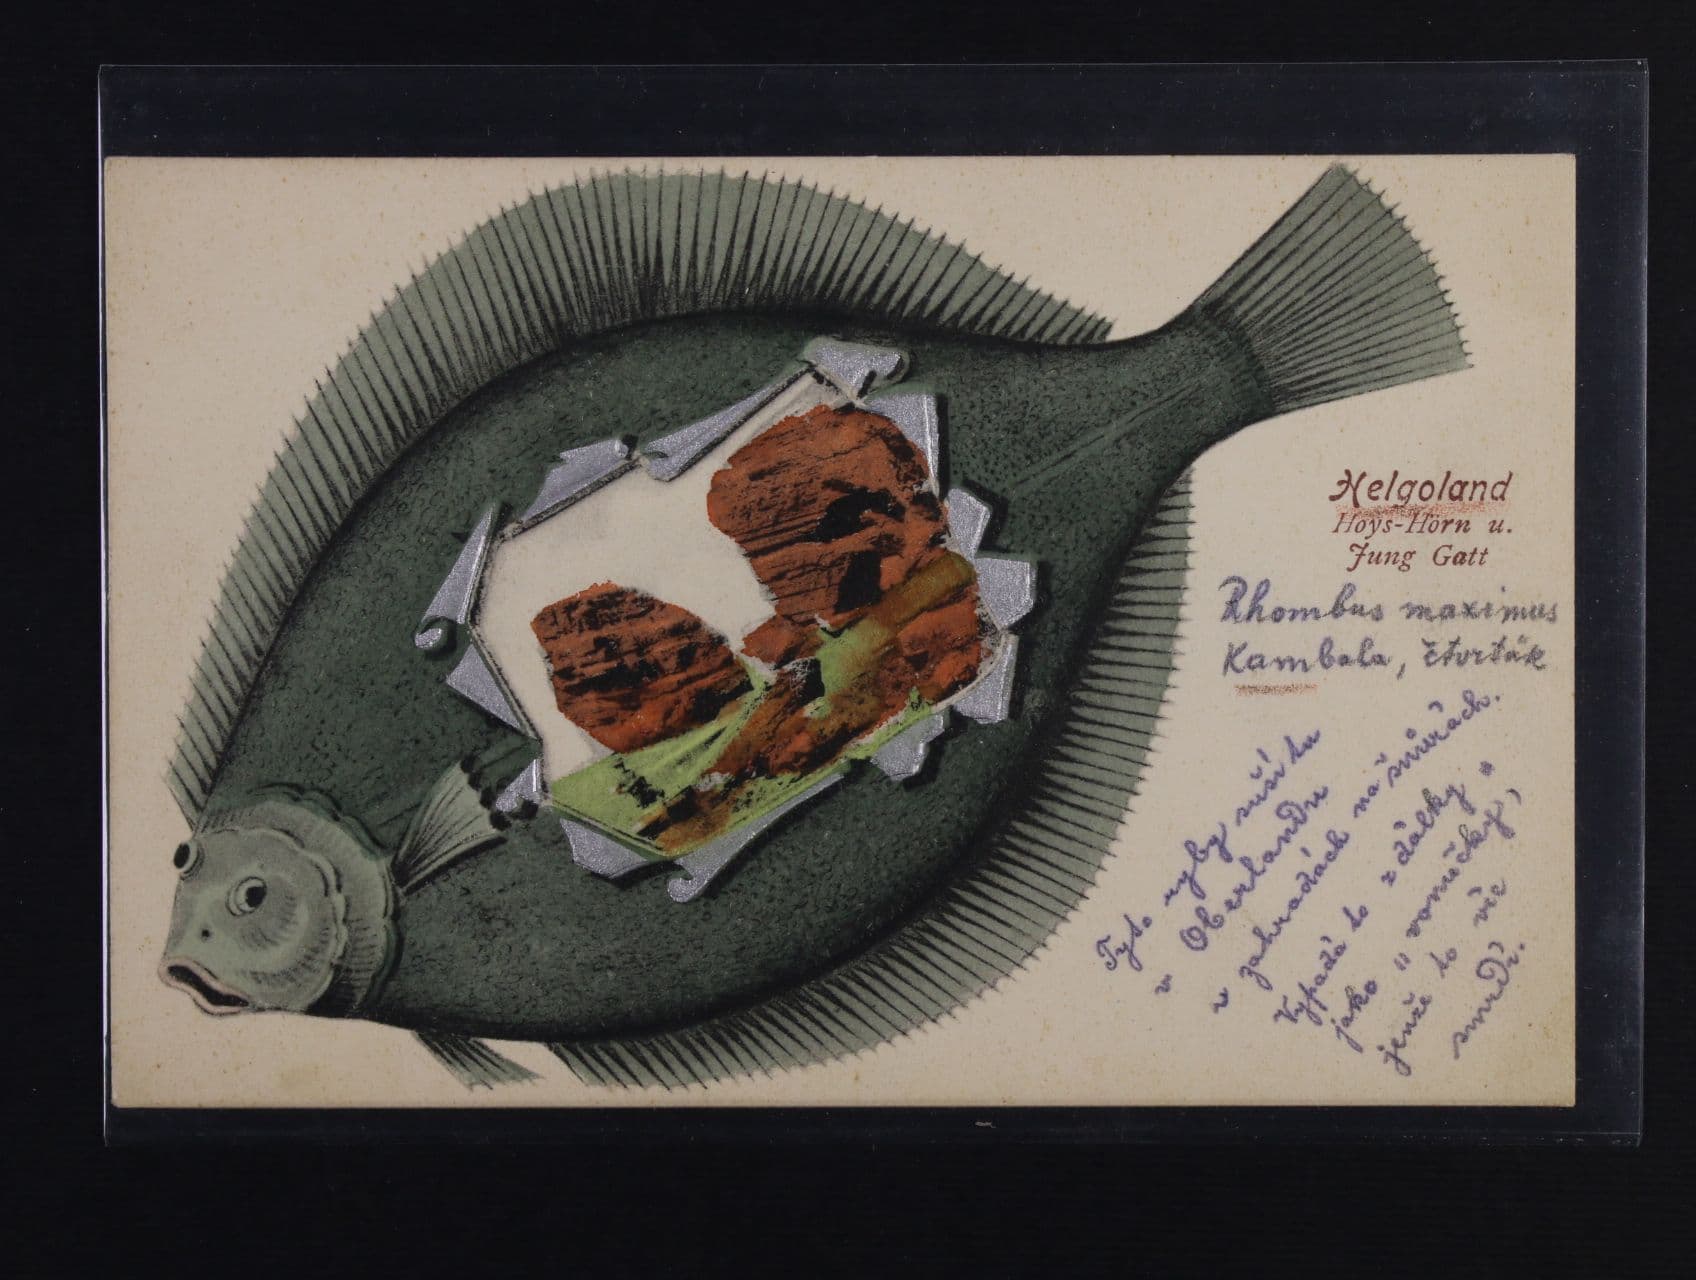 Helgoland
Hoys-Horn u.
Jung Gatt
Rhombus maximus
Kambala, čtverták
Tyto ryby suší tu
v Oberlandu
v zahradách na šňůrách.
Vypadá to z dálky
jako "voničky",
jenže to více
smrdí.